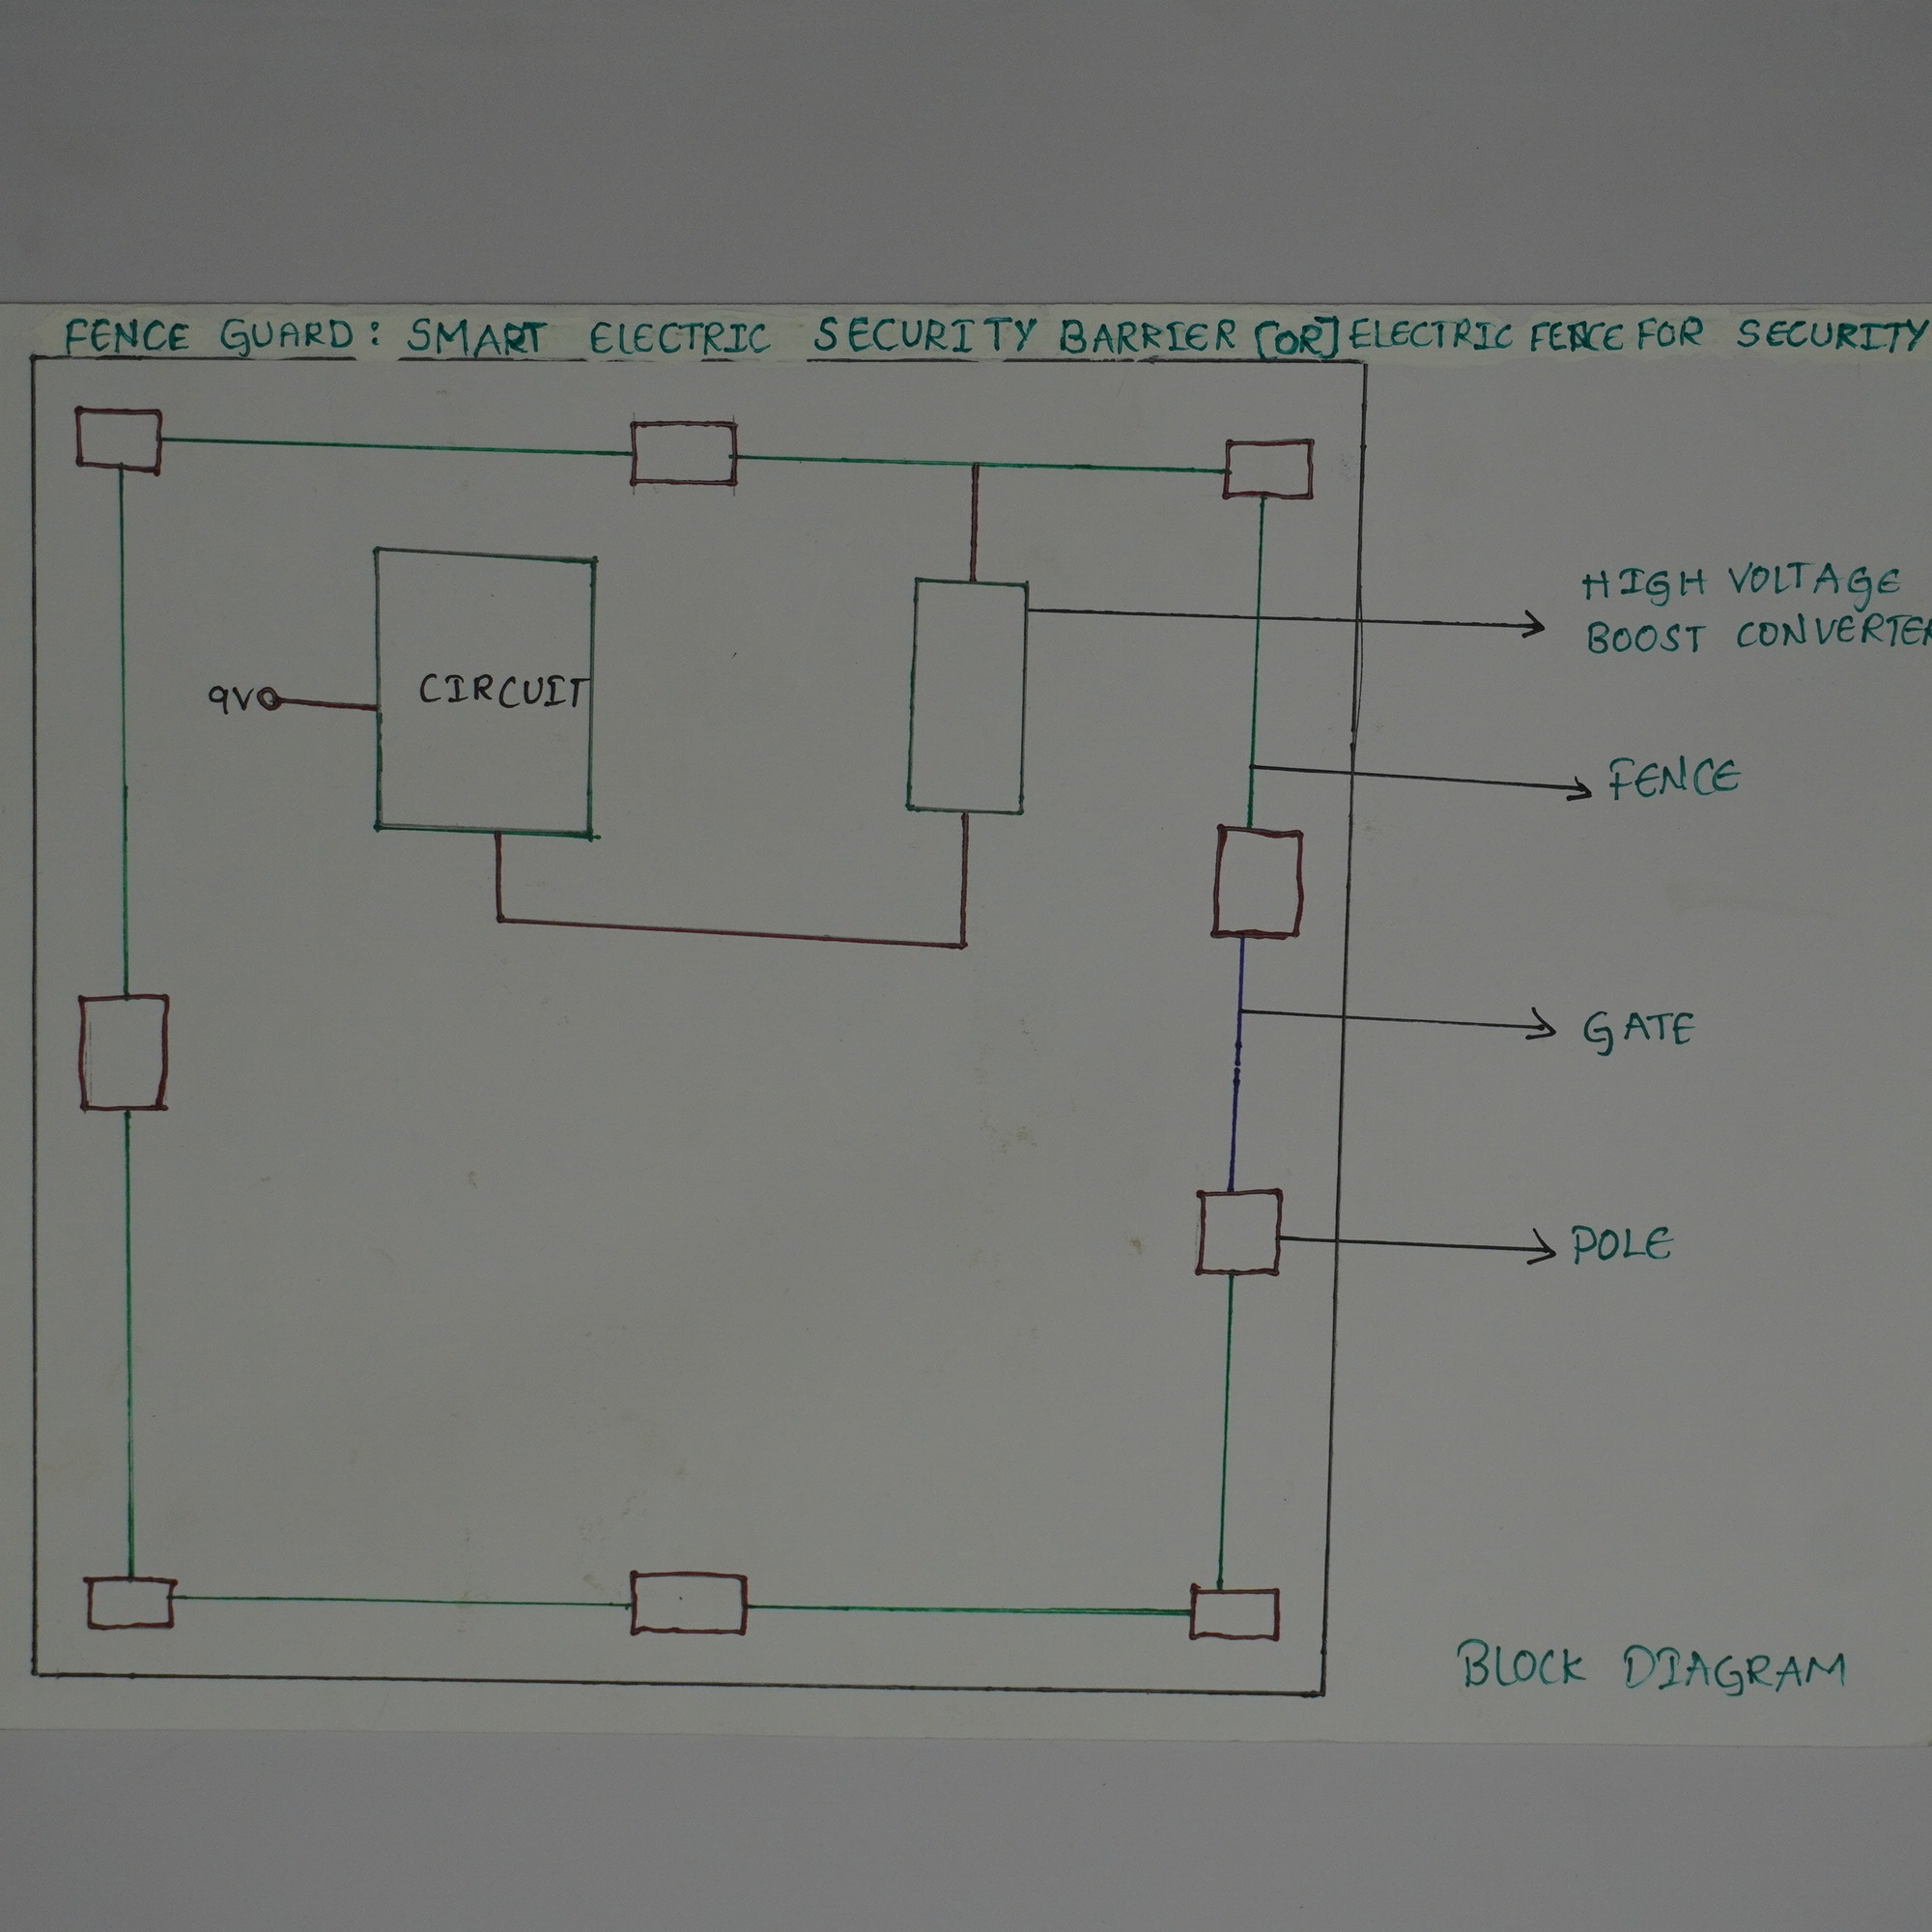 FENCE GUARD: SMART ELECTRIC SECURITY BARRIER [OR] ELECTRIC FENCE FOR SECURITY
HIGH VOLTAGE
BOOST CONVERTER
9V
CIRCUIT
FENCE
GATE
POLE
BLOCK DIAGRAM